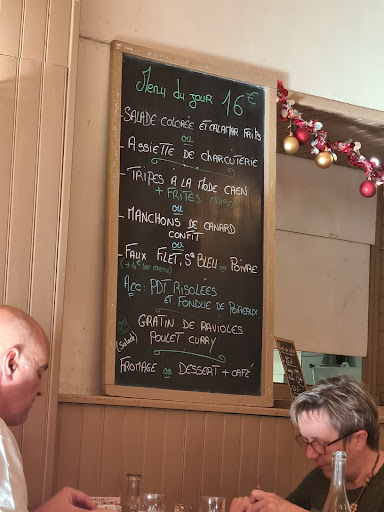 Menu du jour 16€
- SALADE COLORÉE ET CALAMAR FRITS
ou
- ASSIETTE DE CHARCUTERIE
- TRIPES A LA MODE CAEN
+ FRITES MAISON
ou
- MANCHONS DE CANARD
CONFIT
ou
- FAUX FILET, Sce BLEU ou POIVRE
(+4€ sur menu)
Acc: PDT RISOLÉES
ET FONDUE DE POIREAUX
ou
GRATIN DE RAVIOLES
(Salade) POULET CURRY
FROMAGE ou DESSERT + CAFÉ